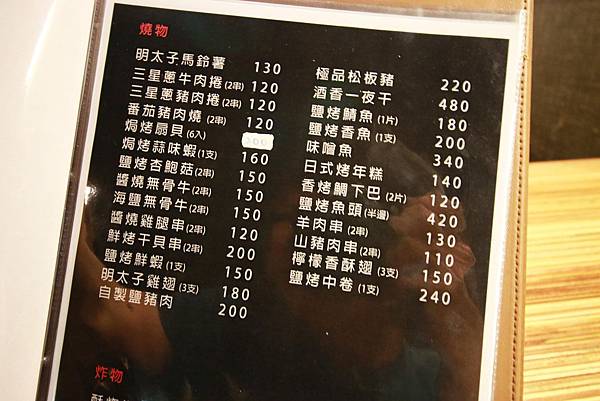 燒物
明太子馬鈴薯 130
三星蔥牛肉捲(2串) 120
三星蔥豬肉捲(2串) 120
番茄豬肉燒(2串) 120
焗烤扇貝(6入)
焗烤蒜味蝦(1支) 160
鹽烤杏鮑菇(2串) 150
醬燒無骨牛(2串) 150
海鹽無骨牛(2串) 150
醬燒雞腿串(2串) 120
鮮烤干貝串(2串) 200
鹽烤鮮蝦(1支) 150
明太子雞翅(3支) 180
自製鹽豬肉 200
極品松板豬 220
酒香一夜干 480
鹽烤鯖魚(1片) 180
鹽烤香魚(1支) 200
味噌魚 340
日式烤年糕 140
香烤鯛下巴(2片) 120
鹽烤魚頭(半邊) 420
羊肉串(2串) 130
山豬肉串(2串) 110
檸檬香酥翅(3支) 150
鹽烤中卷(1支) 240
炸物